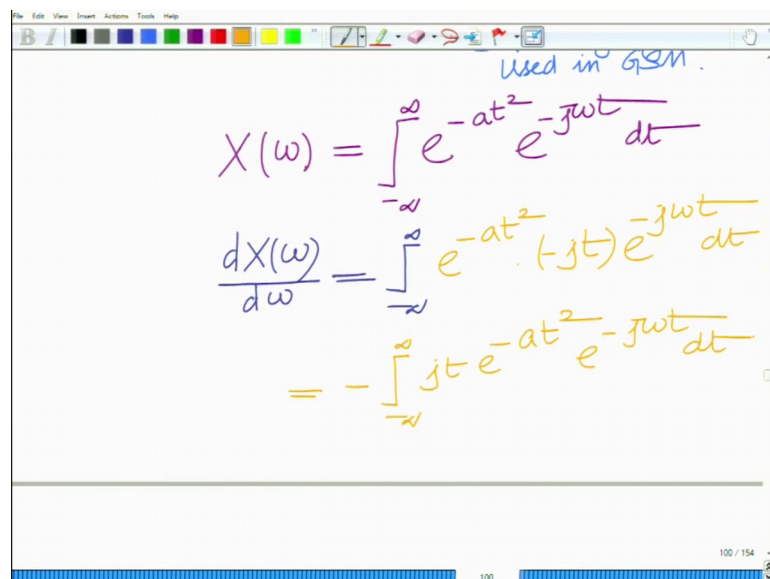 File Edit View Insert Actions Tools Help
B I
Used in GSM.
X(ω) = ∫_{-∞}^{∞} e^{-at²} e^{-jωt} dt
dX(ω)/dω = ∫_{-∞}^{∞} e^{-at²} · (-jt) e^{-jωt} dt
= - ∫_{-∞}^{∞} jt e^{-at²} e^{-jωt} dt
100 / 154
100